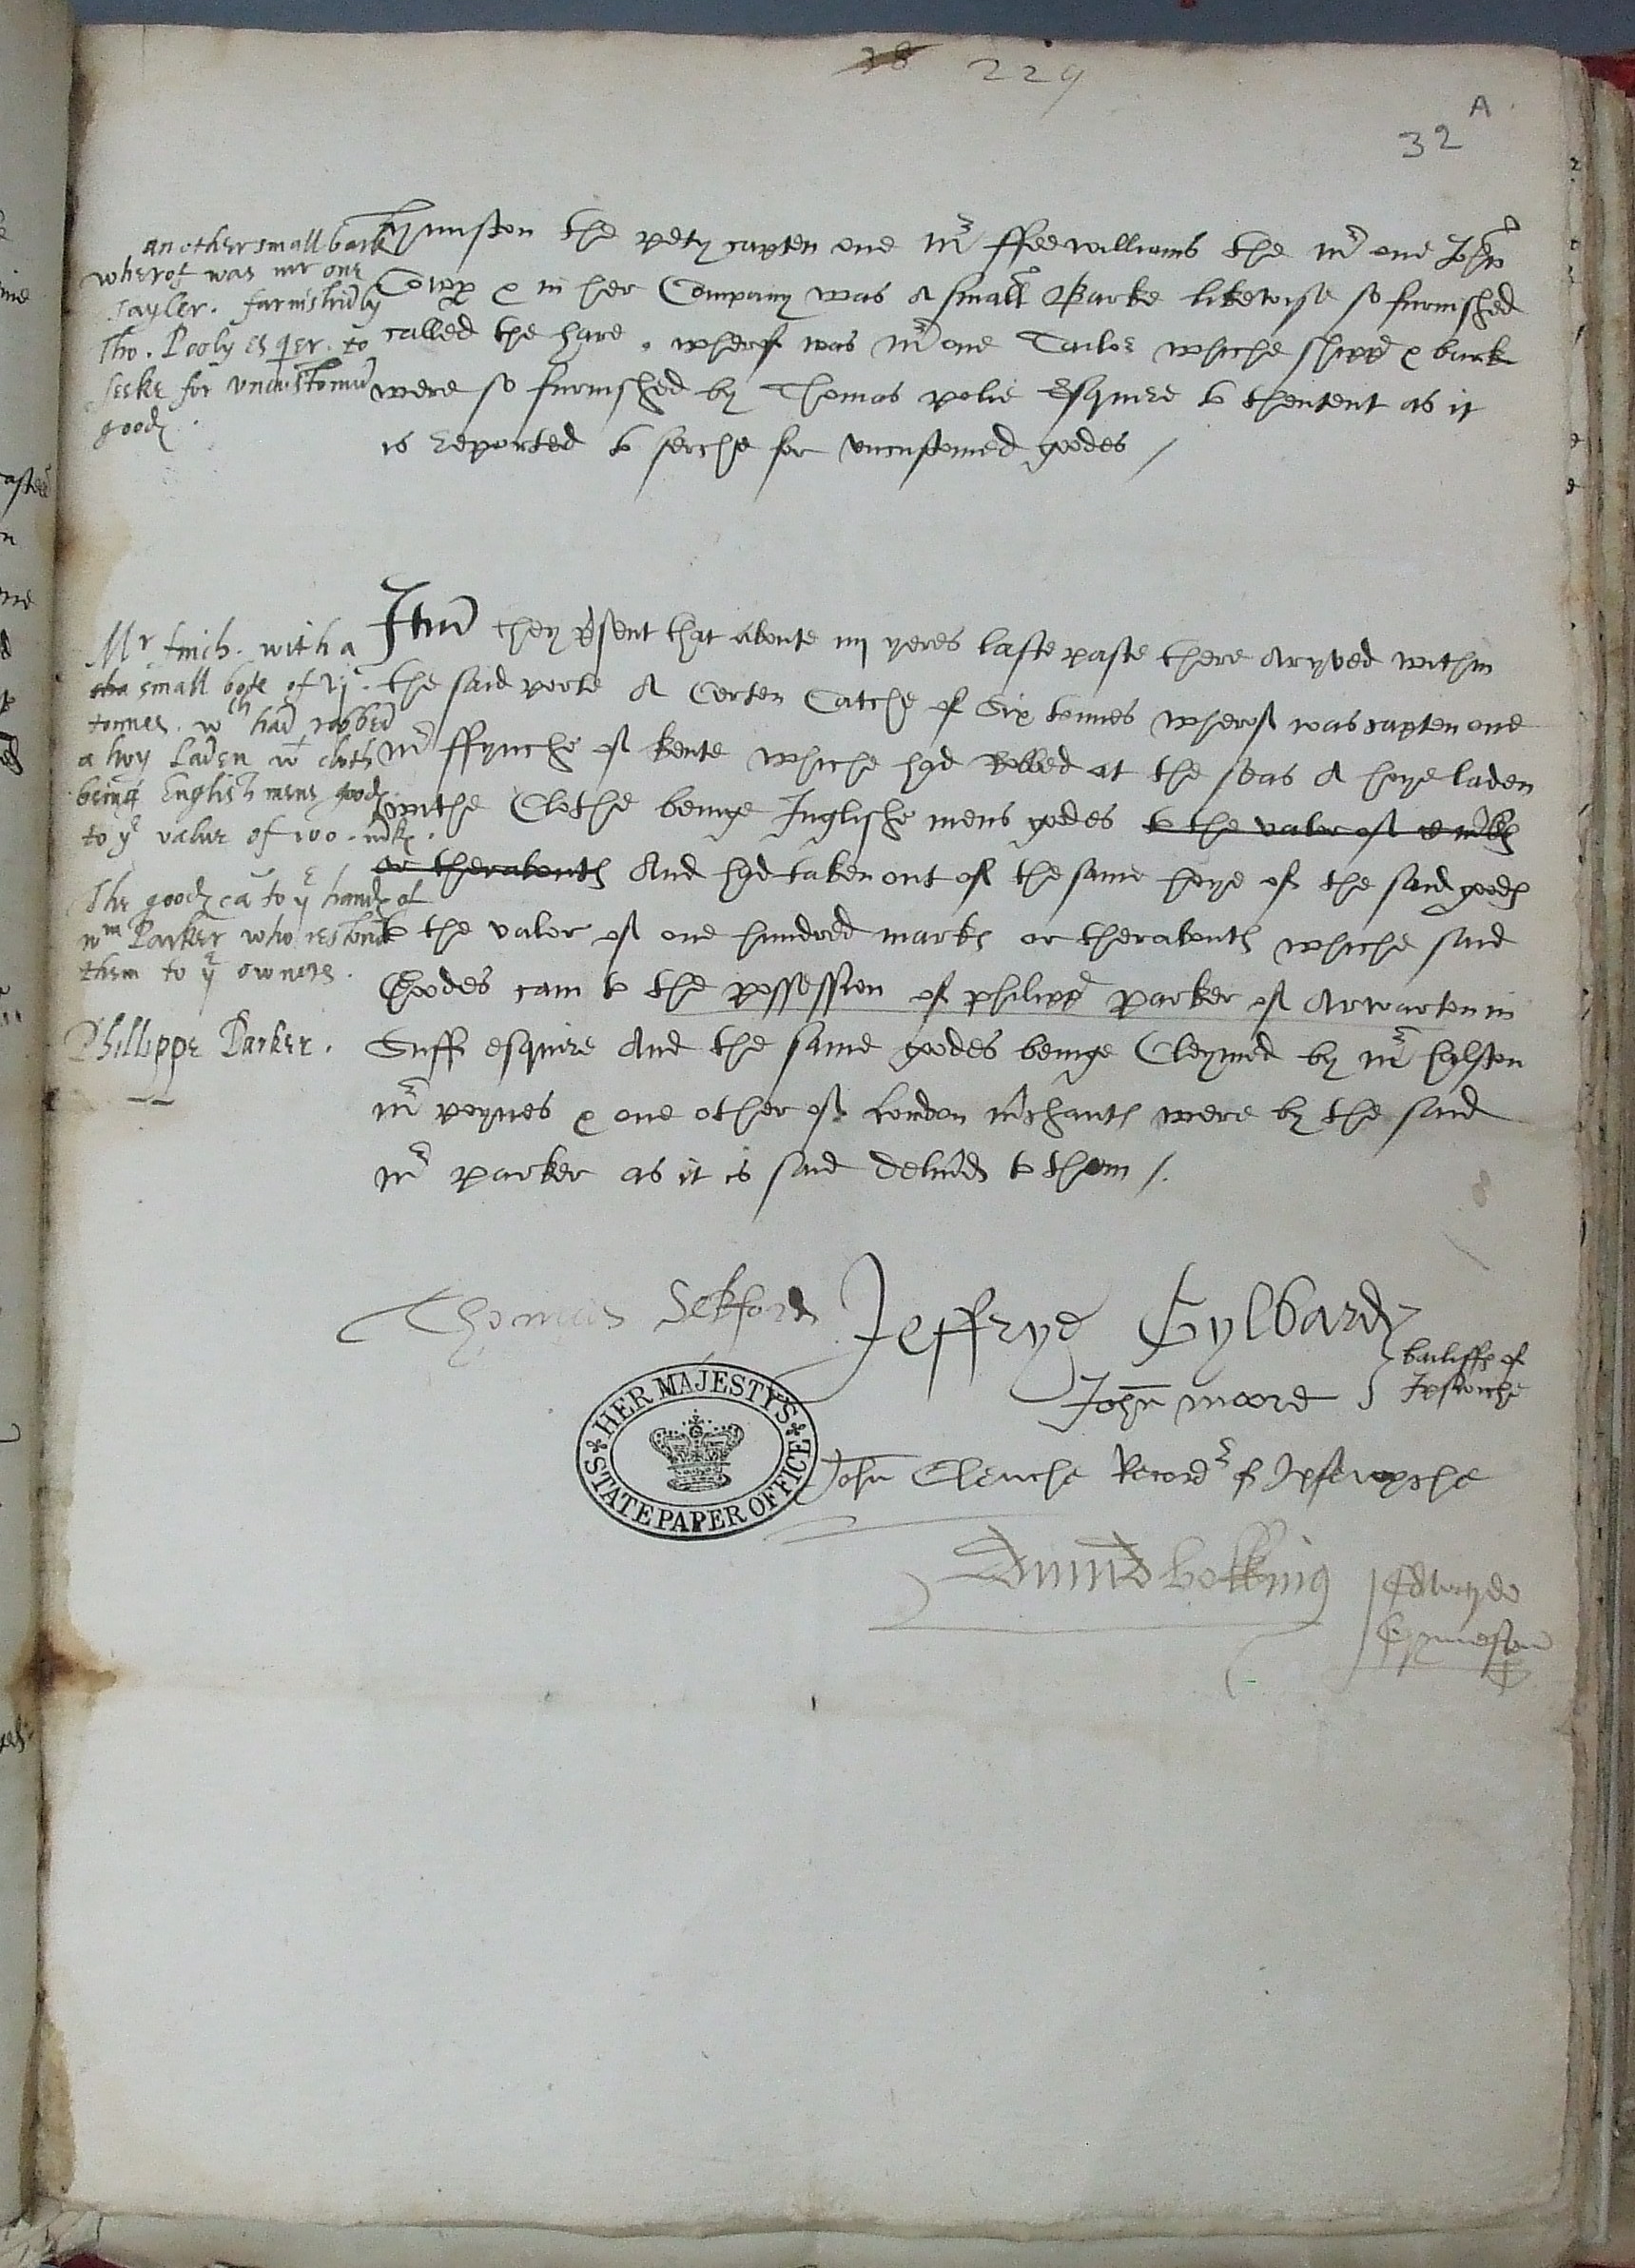 38 229
A
32
another small bark
wherof was mr one
Tayler . furnished by
Tho . Pooly esquer . to
seeke for uncustomed
goodes .
the pety capten one mr ffeewilliams the mr one John
Cowp & in her Company was A small Barke likewyse so furnished
called the hare . wherof was mr one Tailor whiche shipp & bark
were so furnished by Thomas polie Esquire to thentent as it
is Reported to serche for uncustomed goodes /
Mr finch . with a
small bote of vj .
tonnes . wch had robbed
a hoy Laden wt cloth
being Englishmens goodes .
to ye value of 100 . mkes .
The goodes ca to ye handes of
wm Parker who restored
them to ye owners .
Phillippe Parker .
Itm they psent that aboute iiij yeres laste paste there Aryved within
the said porte A Certen Catche of Six tonnes wherof was capten one
mr ffynche of kente whiche had Robbed at the seas A hoye laden
withe Clothe beinge Inglishe mens godes to the valor of c mkes
or theraboutes And had taken out of the same hoye of the said goodes
to the valor of one hundred markes or theraboutes whiche said
Goodes cam to the possession of philipp parker of Arwarton in
Suff esquire And the same goodes beinge Cleymed by mr
mr poynes & one other of London mchantes were by the said
mr parker as it is said delived to them /.
Thomas Sekford Jeffrye Gylbard
John moore
bailiffes of
Ipswiche
John Clenche Recordr of Ipsewyche
HER MAJESTY'S
STATE PAPER OFFICE
Edmund bokking Edwarde
Grymeston